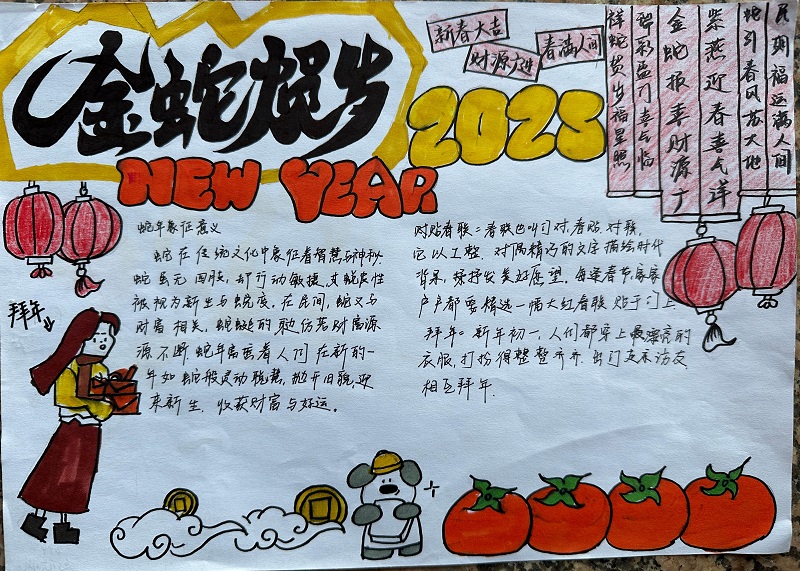 金蛇贺岁
NEW YEAR
新春大吉
财源大进
春满人间
2025
民朝福运满人间
蛇引春风苏大地
紫燕迎春喜气洋
金蛇报喜财源广
彩盈门喜气临
祥蛇贺岁福星照
蛇年象征意义
蛇在传统文化中象征着智慧与神秘
蛇虽无四肢,却行动敏捷,其蜕皮性
被视为新生与蜕变。在民间,蛇又与
财富相关,蜿蜒的 仿若财富源
源不断,蛇年寓意着人们在新的一
年如蛇般灵动聪慧,抛开旧貌,迎
来新生,收获财富与好运。
对贴春联:春联也叫门对,春贴,对联,
它以工整、对偶精巧的文字描绘时代
背景,抒发美好愿望。每逢春节,家家
户户都要精选一幅大红春联贴于门上
拜年:新年初一,人们都穿上最漂亮的
衣服,打扮得整整齐齐,出门 访友
相互拜年.
拜年